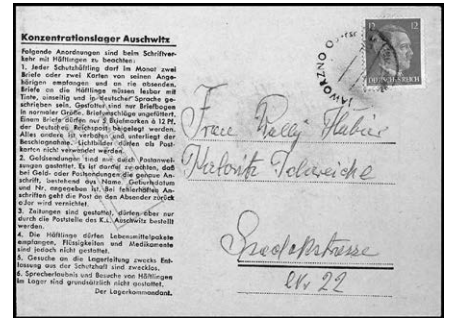 Konzentrationslager Auschwitz
Folgende Anordnungen sind beim Schriftver-
kehr mit Häftlingen zu beachten:
1. Jeder Schutzhäftling darf im Monat zwei
Briefe oder zwei Karten von seinen Ange-
hörigen empfangen und an sie absenden.
Briefe an die Häftlinge müssen lesbar mit
Tinte, einseitig und in deutscher Sprache ge-
schrieben sein. Gestattet sind nur Briefbogen
in normaler Größe. Briefumschläge ungefüttert.
Einem Briefe dürfen nur 5 Briefmarken à 12 Pf.
der Deutschen Reichspost beigelegt werden.
Alles andere ist verboten und unterliegt der
Beschlagnahme. Lichtbilder dürfen als Post-
karten nicht verwendet werden.
2. Geldsendungen sind nur durch Postanwei-
sungen gestattet. Es ist darauf zu achten, daß
bei Geld- oder Postsendungen die genaue An-
schrift, bestehend aus Name, Geburtsdatum
und Nr. angegeben ist. Bei fehlerhaften An-
schriften geht die Post an den Absender zurück
oder wird vernichtet.
3. Zeitungen sind gestattet, dürfen aber nur
durch die Poststelle des K.L. Auschwitz bestellt
werden.
4. Die Häftlinge dürfen Lebensmittelpakete
empfangen, Flüssigkeiten und Medikamente
sind jedoch nicht gestattet.
5. Gesuche an die Lagerleitung zwecks Ent-
lassung aus der Schutzhaft sind zwecklos.
6. Sprecherlaubnis und Besuche von Häftlingen
im Lager sind grundsätzlich nicht gestattet.
Der Lagerkommandant.
JAWORZNO
12 12
DEUTSCHES REICH
Frau
Nr 22